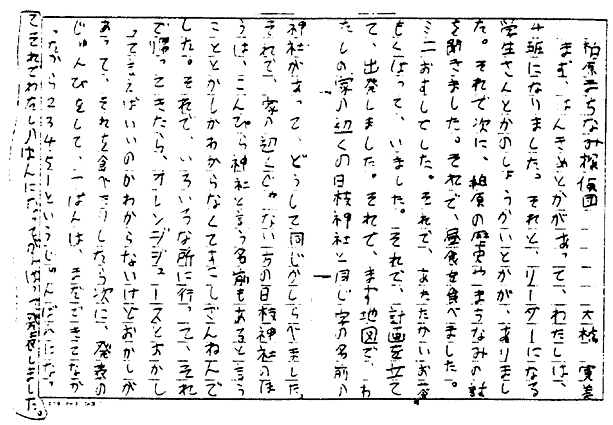 柏原まちなみ探偵団　大橋　寛美
まず、はんきめとかがあって、わたしは、
4班になりました。それと、リーダーになる
学生さんとかのしょうかいとかが、ありまし
た。それで次に、柏原の歴史やまちなみの話
を聞きました。それで、昼食を食べました。
ミニおすしでした。それで、あたたかいお茶
もくばって、いました。それで、計画を立て
て、出発しました。それで、まず地図で、わ
たしの家の近くの日枝神社と同じ字の名前の
神社があって、どうして同じかしらべました。
それで、家の近くじゃない方の日枝神社のほ
うは、こんぴら神社と言う名前もあると言う
こととかしかわからなくてすこしざんねんで
した。それで、いろいろな所に行って、それ
で帰ってきたら、オレンジジュースとおかし
ってきえばいいのかわからないけどおかしが
あって、それを食べたりしたら次に、発表の
じゅんびをして、一ぱんは、まだできてなか
ったから23451というじゅんばんになっ
てそれでわたしのはんになってがんばって発表しました。